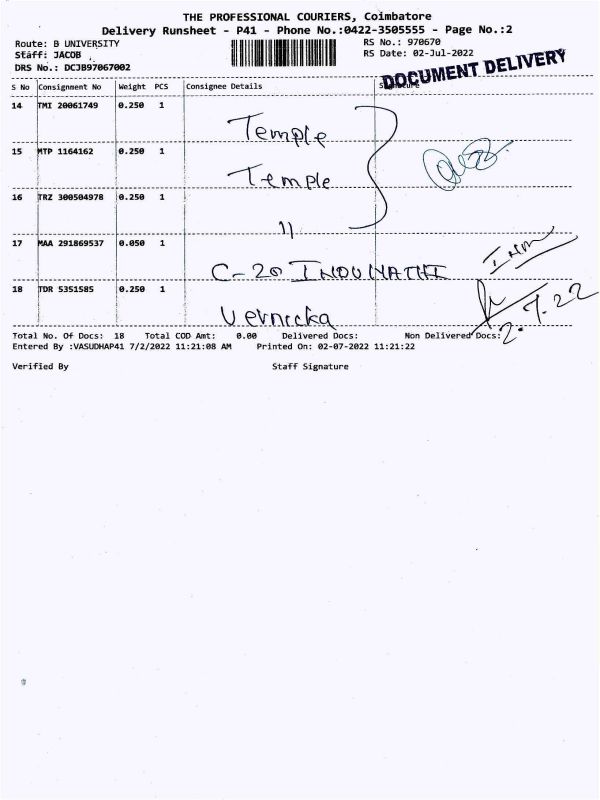 THE PROFESSIONAL COURIERS, Coimbatore
Delivery Runsheet - P41 - Phone No.:0422-3505555 - Page No.:2
Route: B UNIVERSITY
RS No.: 970670
Staff: JACOB
RS Date: 02-Jul-2022
DRS No.: DCJB97067002
DOCUMENT DELIVERY
S No Consignment No Weight PCS Consignee Details Signature
14 TMI 20061749 0.250 1 Temple
15 MTP 1164162 0.250 1 Temple
16 TRZ 300504978 0.250 1 "
17 MAA 291869537 0.050 1 C-20 INDUMATHI
18 TDR 5351585 0.250 1 Vernicka
2.7.22
Total No. Of Docs: 18 Total COD Amt: 0.00 Delivered Docs: Non Delivered Docs:
Entered By :VASUDHAP41 7/2/2022 11:21:08 AM Printed On: 02-07-2022 11:21:22
Verified By Staff Signature